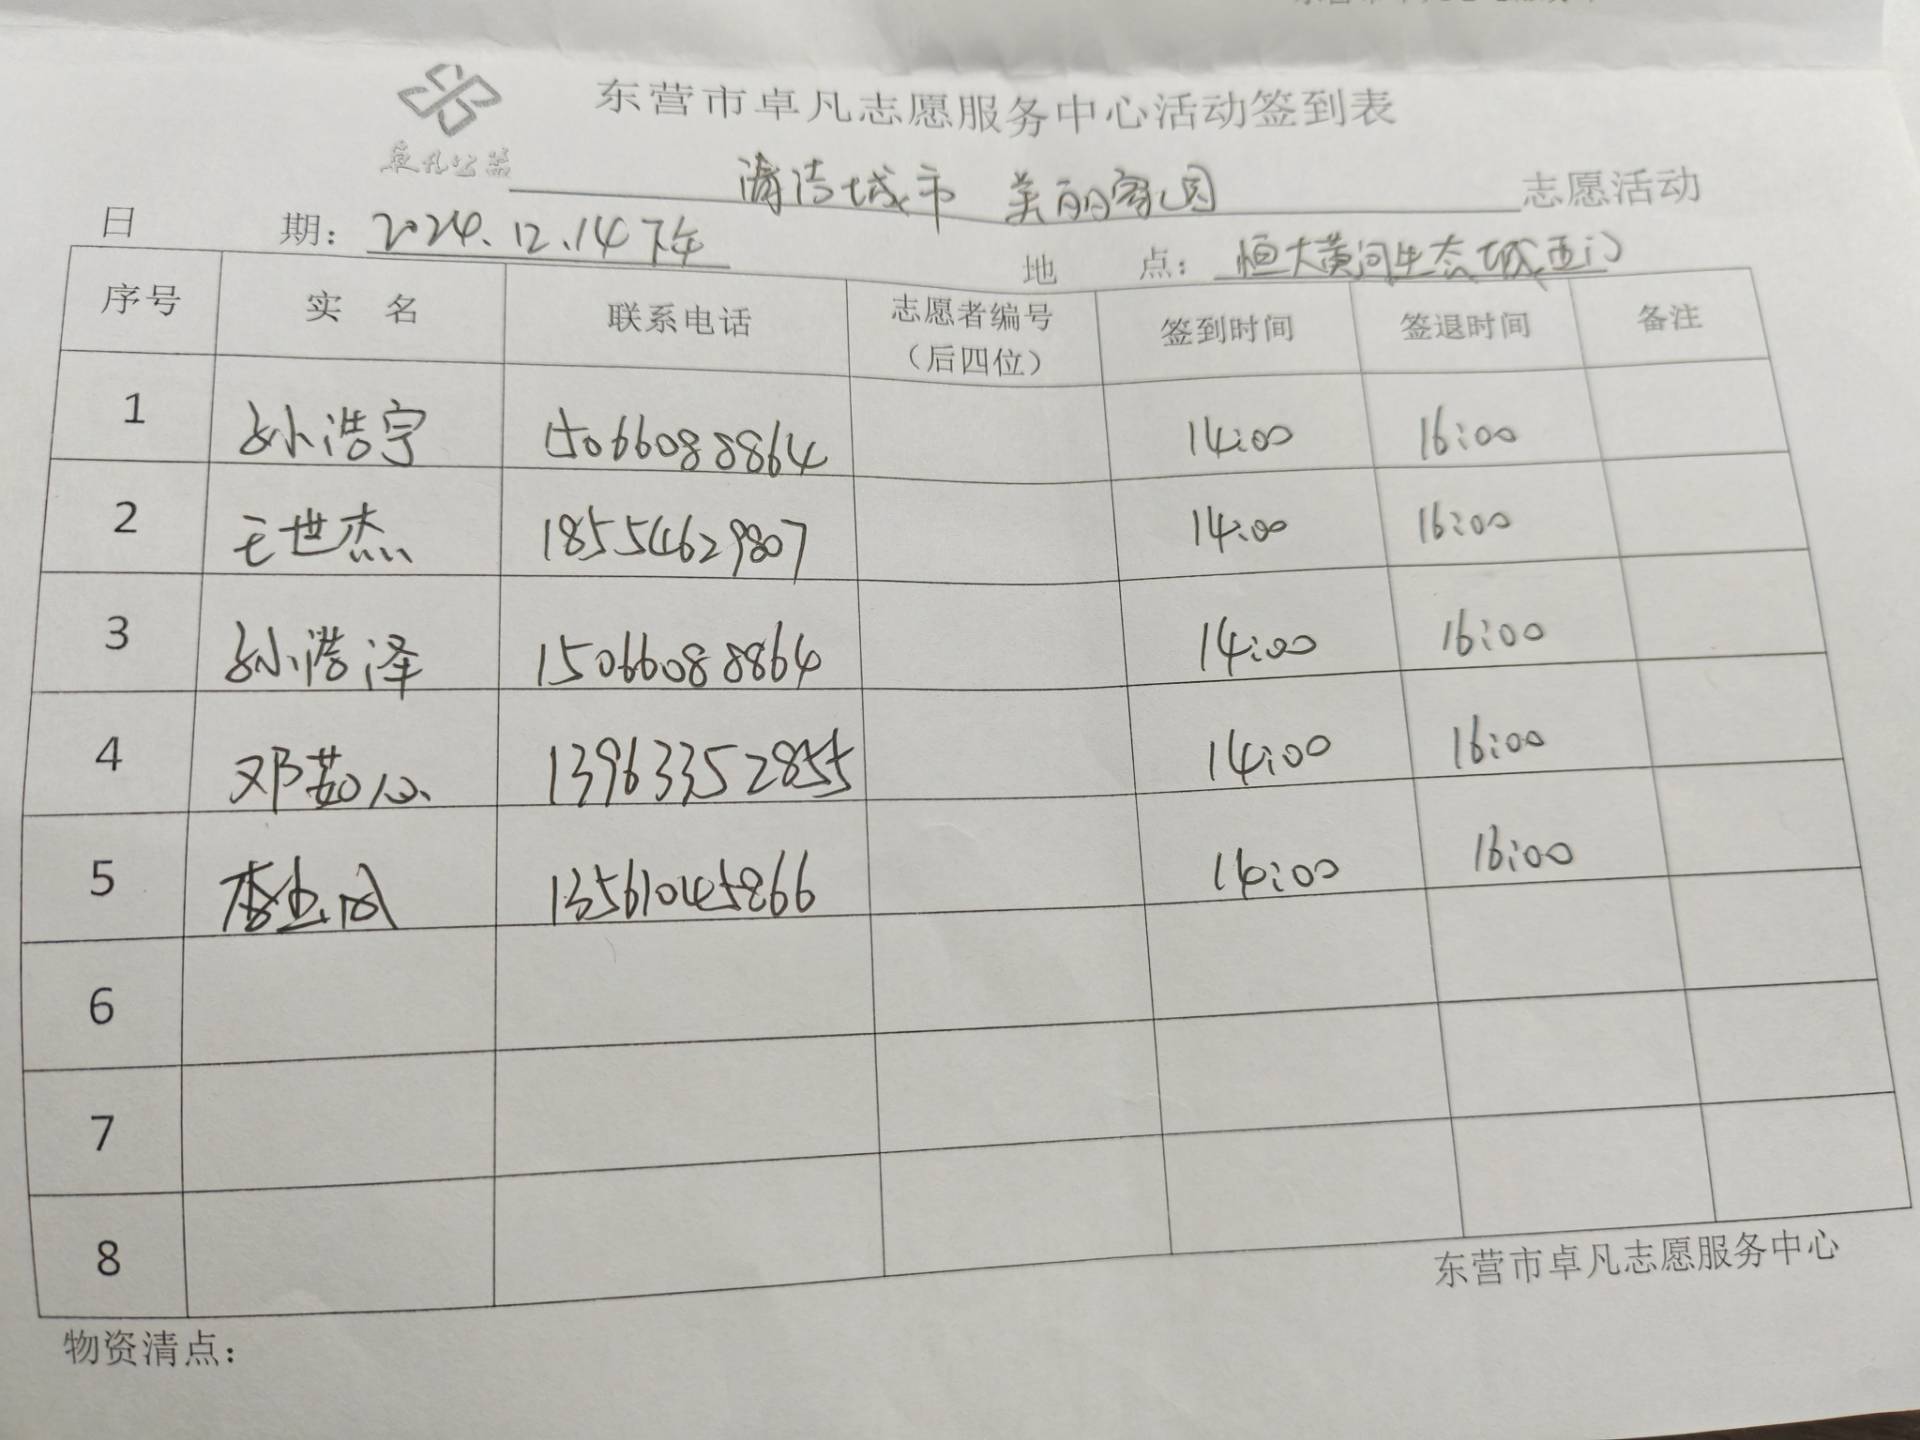 东营市卓凡志愿服务中心活动签到表
卓凡公益
清洁城市 美丽家园 志愿活动
日 期：2024.12.14下午 地 点：恒大黄河生态城西门
序号 实 名 联系电话 志愿者编号（后四位） 签到时间 签退时间 备注
1 孙浩宇 15066088864 14:00 16:00
2 王世杰 18554629807 14:00 16:00
3 孙浩泽 15066088864 14:00 16:00
4 邓茹心 13963352855 14:00 16:00
5 13561045866 14:00 16:00
6
7
8
东营市卓凡志愿服务中心
物资清点：